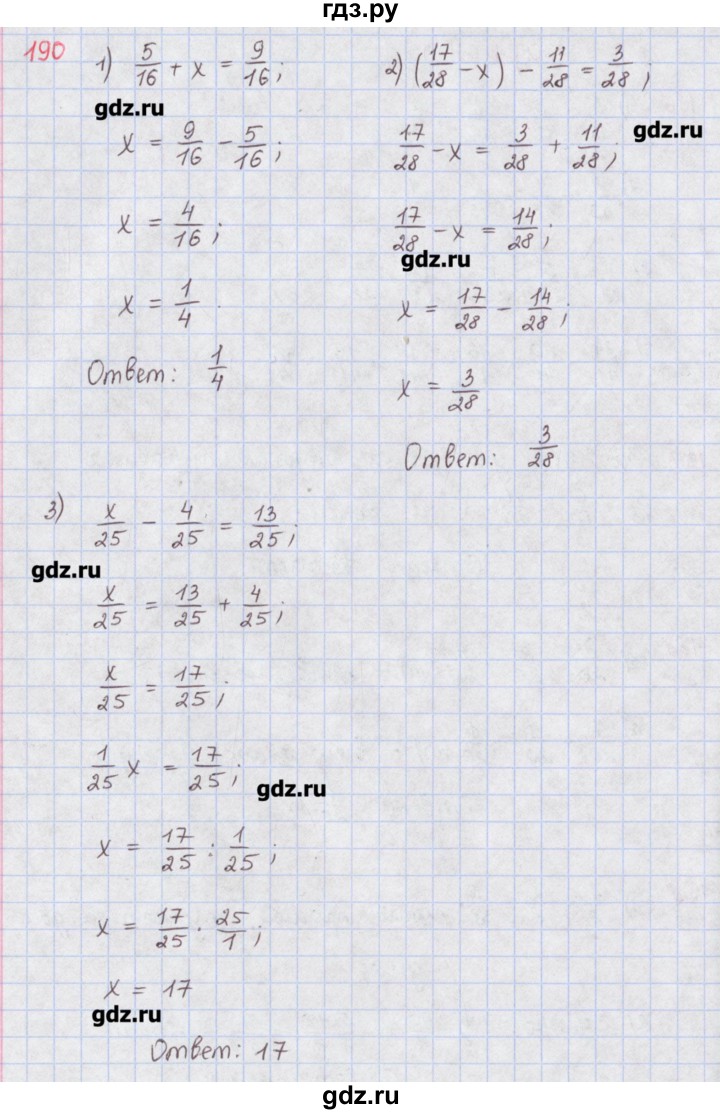 гдз.ру
190
1) 5/16 + x = 9/16;
gdz.ru
x = 9/16 - 5/16;
x = 4/16;
x = 1/4
Ответ: 1/4
2) (17/28 - x) - 11/28 = 3/28;
gdz.ru
17/28 - x = 3/28 + 11/28;
17/28 - x = 14/28;
gdz.ru
x = 17/28 - 14/28;
x = 3/28
Ответ: 3/28
3) x/25 - 4/25 = 13/25;
gdz.ru
x/25 = 13/25 + 4/25;
x/25 = 17/25;
1/25 x = 17/25;
gdz.ru
x = 17/25 : 1/25;
x = 17/25 · 25/1;
x = 17
gdz.ru
Ответ: 17
gdz.ru